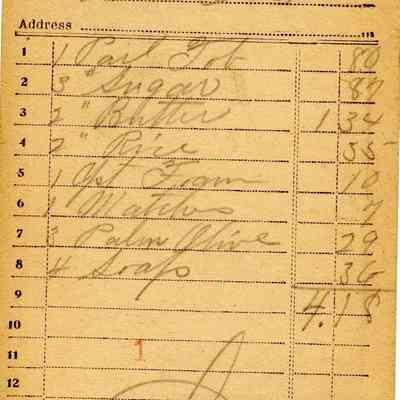 Address
1 1 Pail Tob 80
2 3 " Sugar 87
3 2 " Butter 1 34
4 2 " Rice 35
5 1 Yst Foam 10
6 1 Matches 7
7 3 Palm Olive 29
8 4 Soaps 36
9 4.18
10
11 1
12